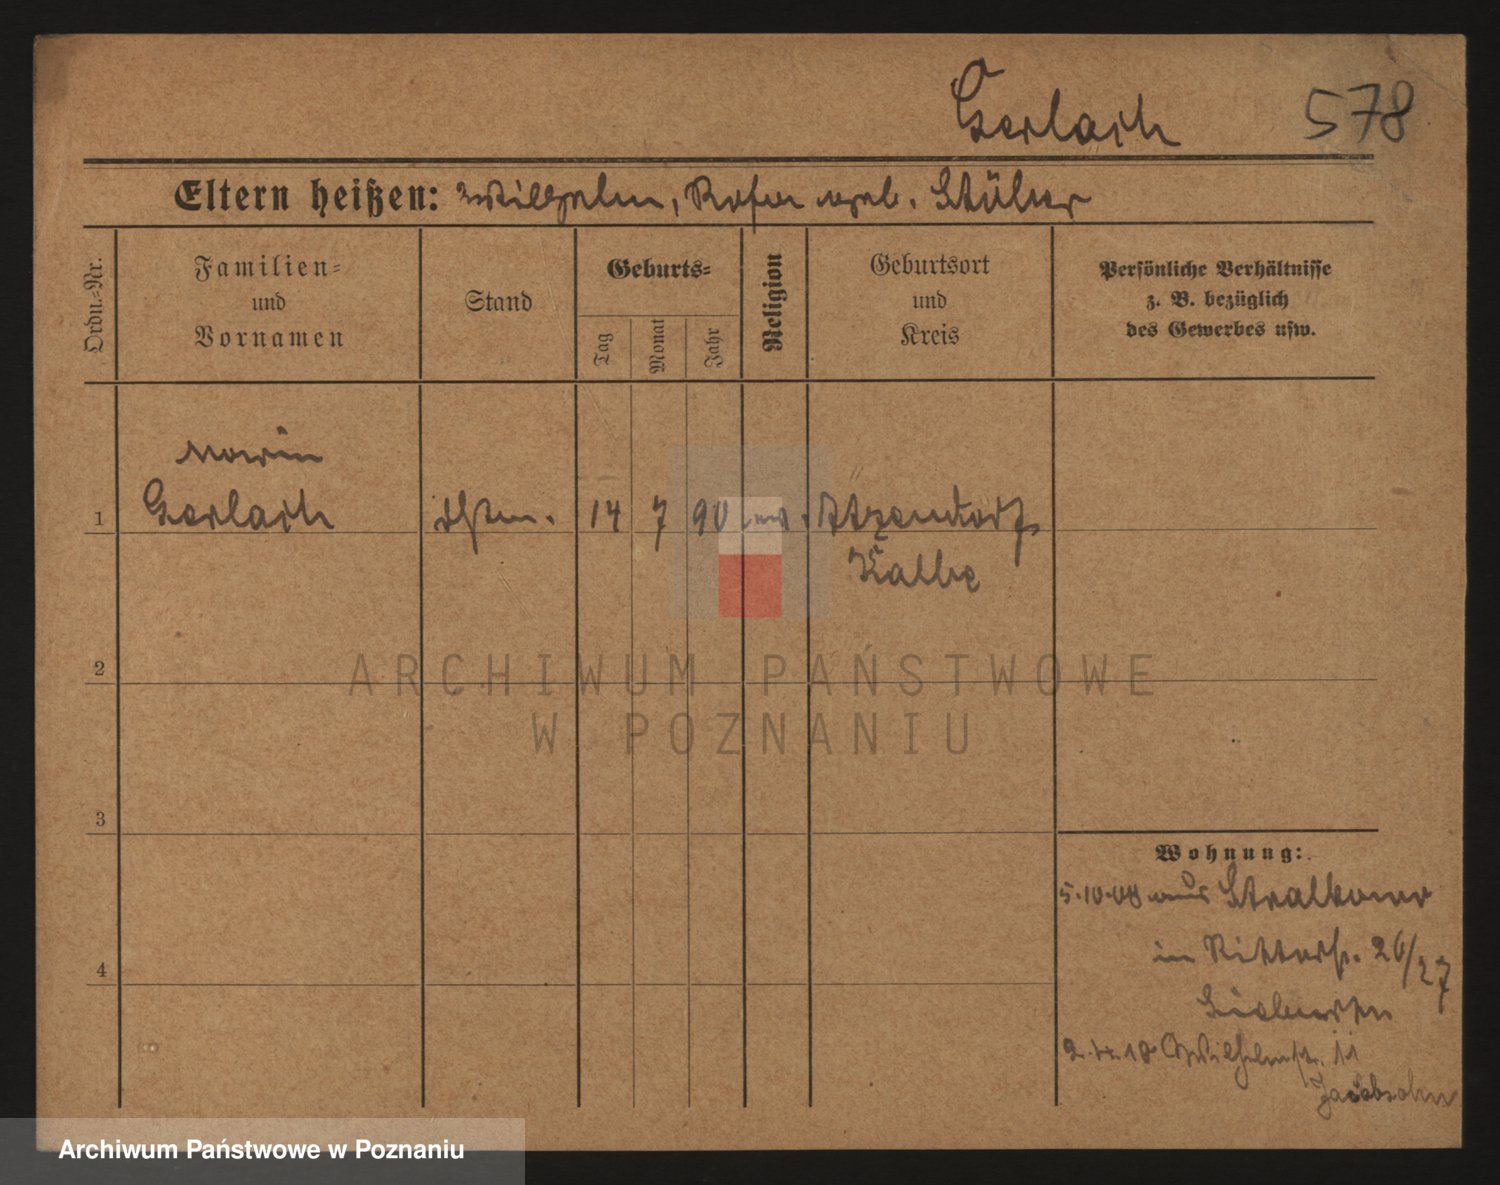 Gerlach 578
Eltern heißen: Wilhelm, geb. Stüber
Ordn.-Nr.
Familien-
und
Vornamen
Stand
Geburts-
Tag
Monat
Jahr
Religion
Geburtsort
und
Kreis
Persönliche Verhältnisse
z. B. bezüglich
des Gewerbes usw.
Marie
1 Gerlach 14 7 90 Atzendorf,
Kalbe
ARCHIWUM PAŃSTWOWE
W POZNANIU
2
3
Wohnung:
5.10.08 aus Stralkowo
in Ritterstr. 26/27
4
Wilhelmstr. 11
Jacobsohn
Archiwum Państwowe w Poznaniu